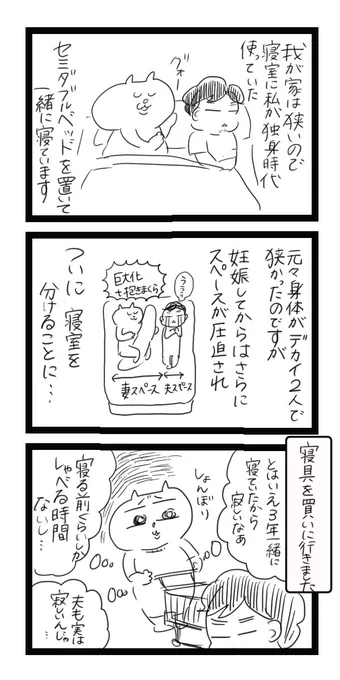 我が家は狭いので
寝室に私が独身時代
使っていた
グォー
セミダブルベッドを置いて
一緒に寝ています
元々身体がデカイ2人で
狭かったのですが
妊娠してからはさらに
スペースが圧迫され
ううう…
巨大化
+抱きまくら
妻スペース
夫スペース
ついに寝室を
分けることに…
寝具を買いに行きました
とはいえ3年一緒に
寝ていたから
寂しいなあ
しょんぼり
寝る前ぐらいしか
しゃべる時間
ないし…
夫も実は
寂しいんじゃ
…